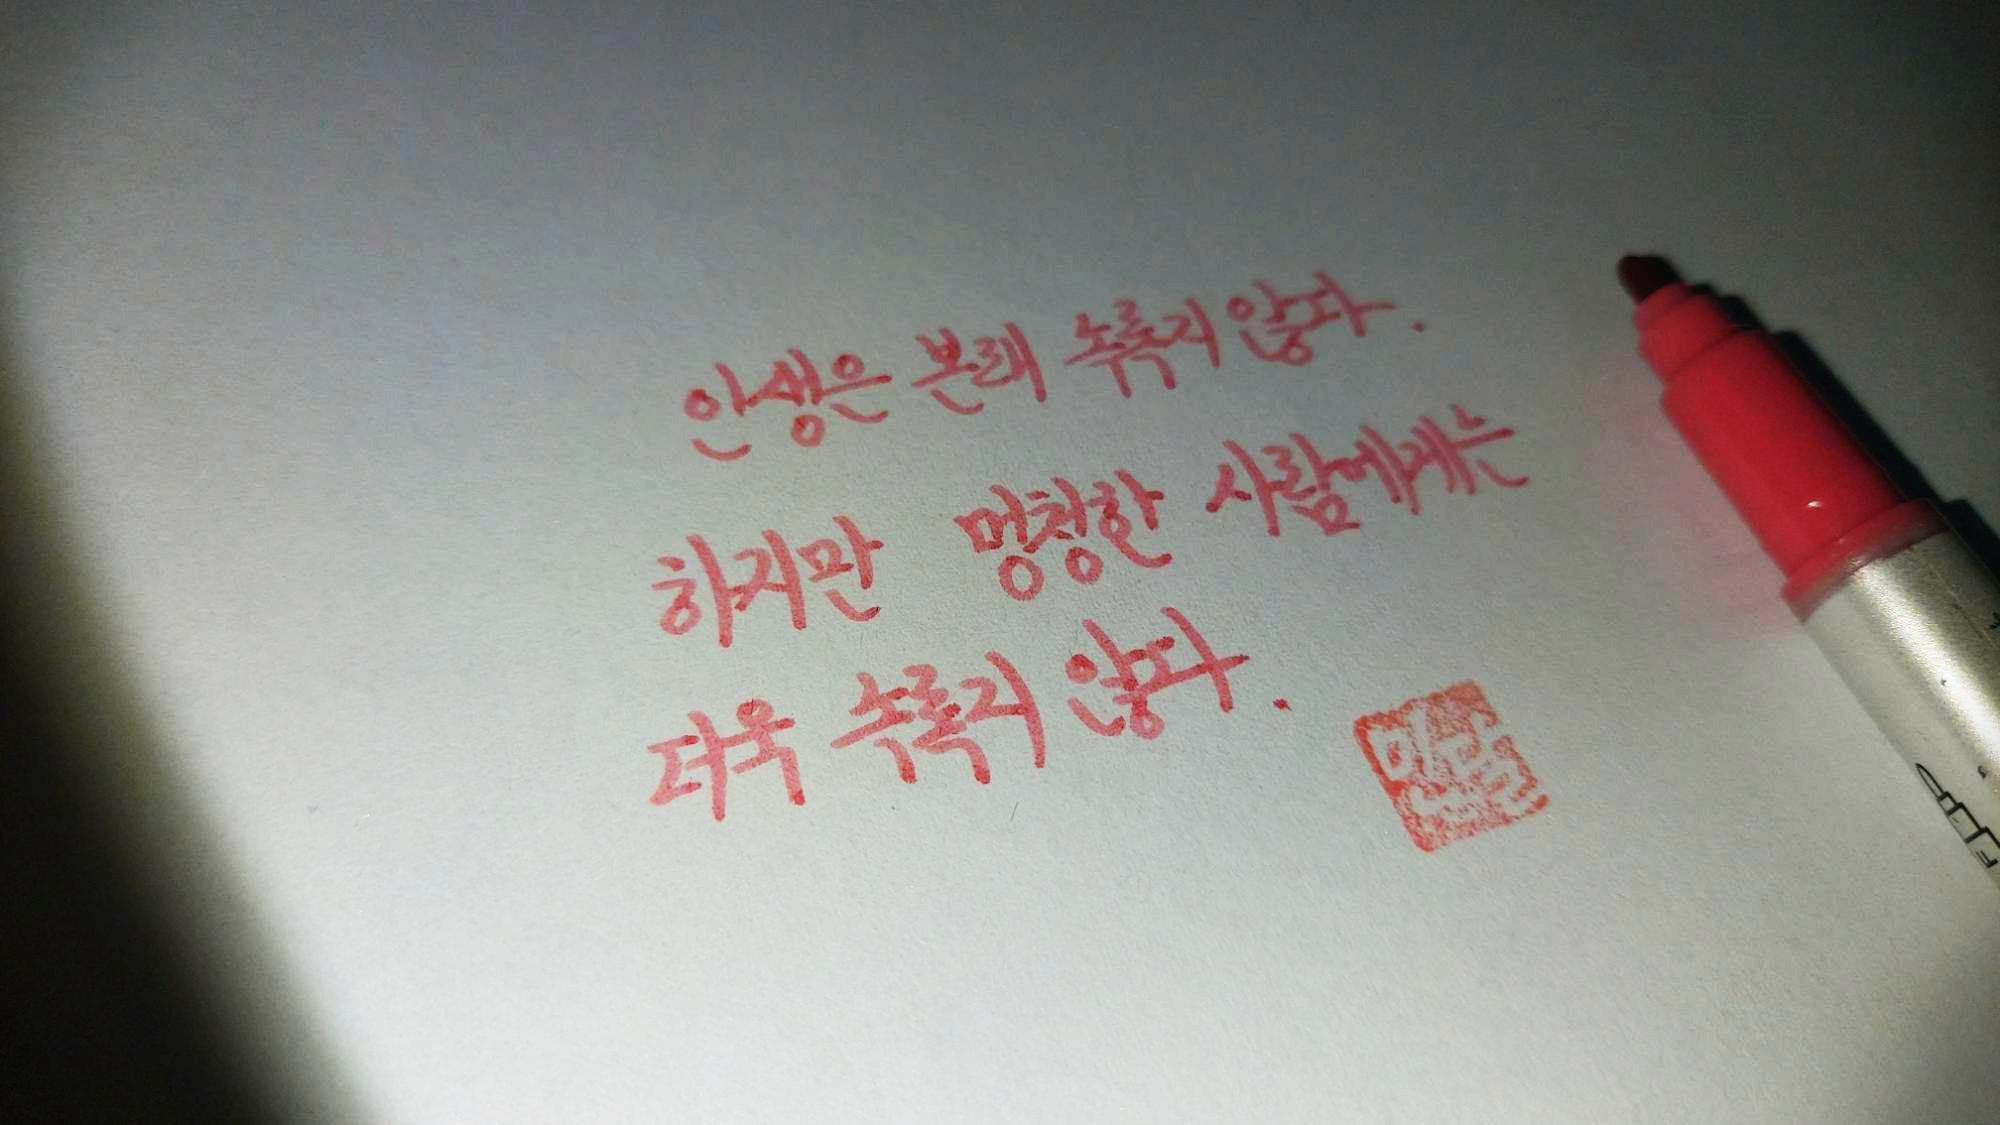 인생은 본래 녹록지 않다.
하지만 멍청한 사람에게는
더욱 녹록지 않다.